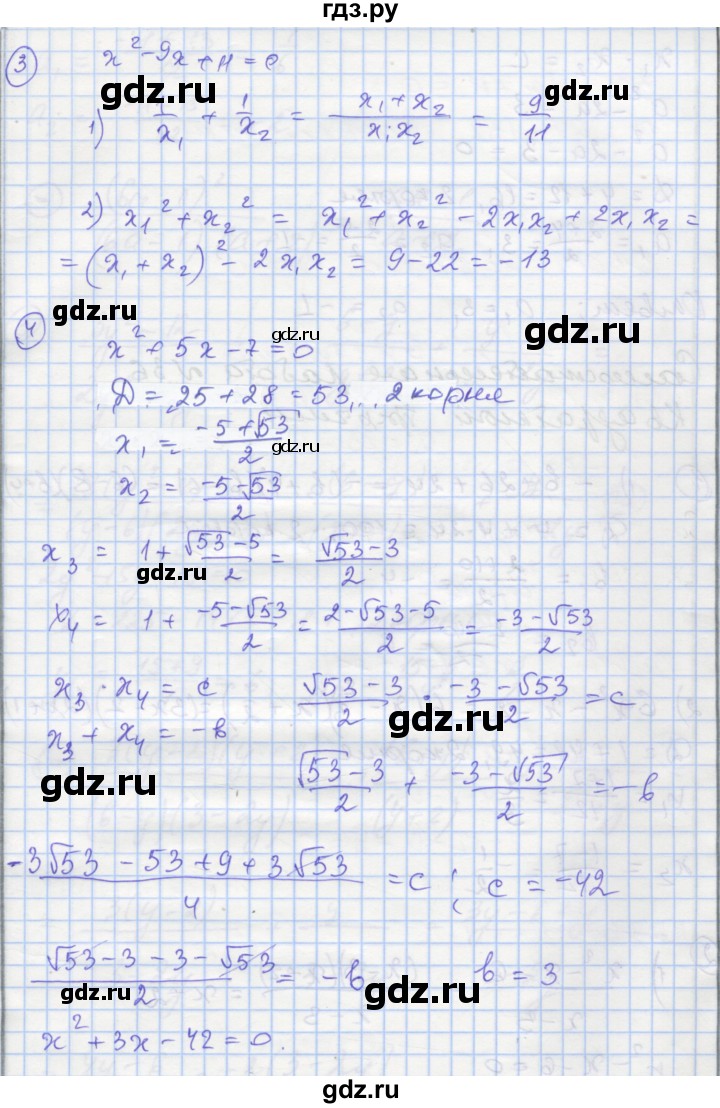 гдз.ру
③ x² - 9x + 11 = 0
gdz.ru
gdz.ru
1) 1/x₁ + 1/x₂ = (x₁ + x₂)/(x₁x₂) = 9/11
2) x₁² + x₂² = x₁² + x₂² - 2x₁x₂ + 2x₁x₂ =
= (x₁ + x₂)² - 2x₁x₂ = 9 - 22 = -13
gdz.ru
④ x² + 5x - 7 = 0
gdz.ru
gdz.ru
Д = 25 + 28 = 53, 2 корня
x₁ = (-5 + √53)/2
gdz.ru
x₂ = (-5 - √53)/2
x₃ = 1 + (√53 - 5)/2 = (√53 - 3)/2
gdz.ru
x₄ = 1 + (-5 - √53)/2 = (2 - √53 - 5)/2 = (-3 - √53)/2
x₃ · x₄ = c (√53 - 3)/2 · (-3 - √53)/2 = c
gdz.ru
x₃ + x₄ = -b
gdz.ru
(√53 - 3)/2 + (-3 - √53)/2 = -b
(-3√53 - 53 + 9 + 3√53)/4 = c; c = -42
(√53 - 3 - 3 - √53)/2 = -b b = 3
gdz.ru
gdz.ru
x² + 3x - 42 = 0.
gdz.ru